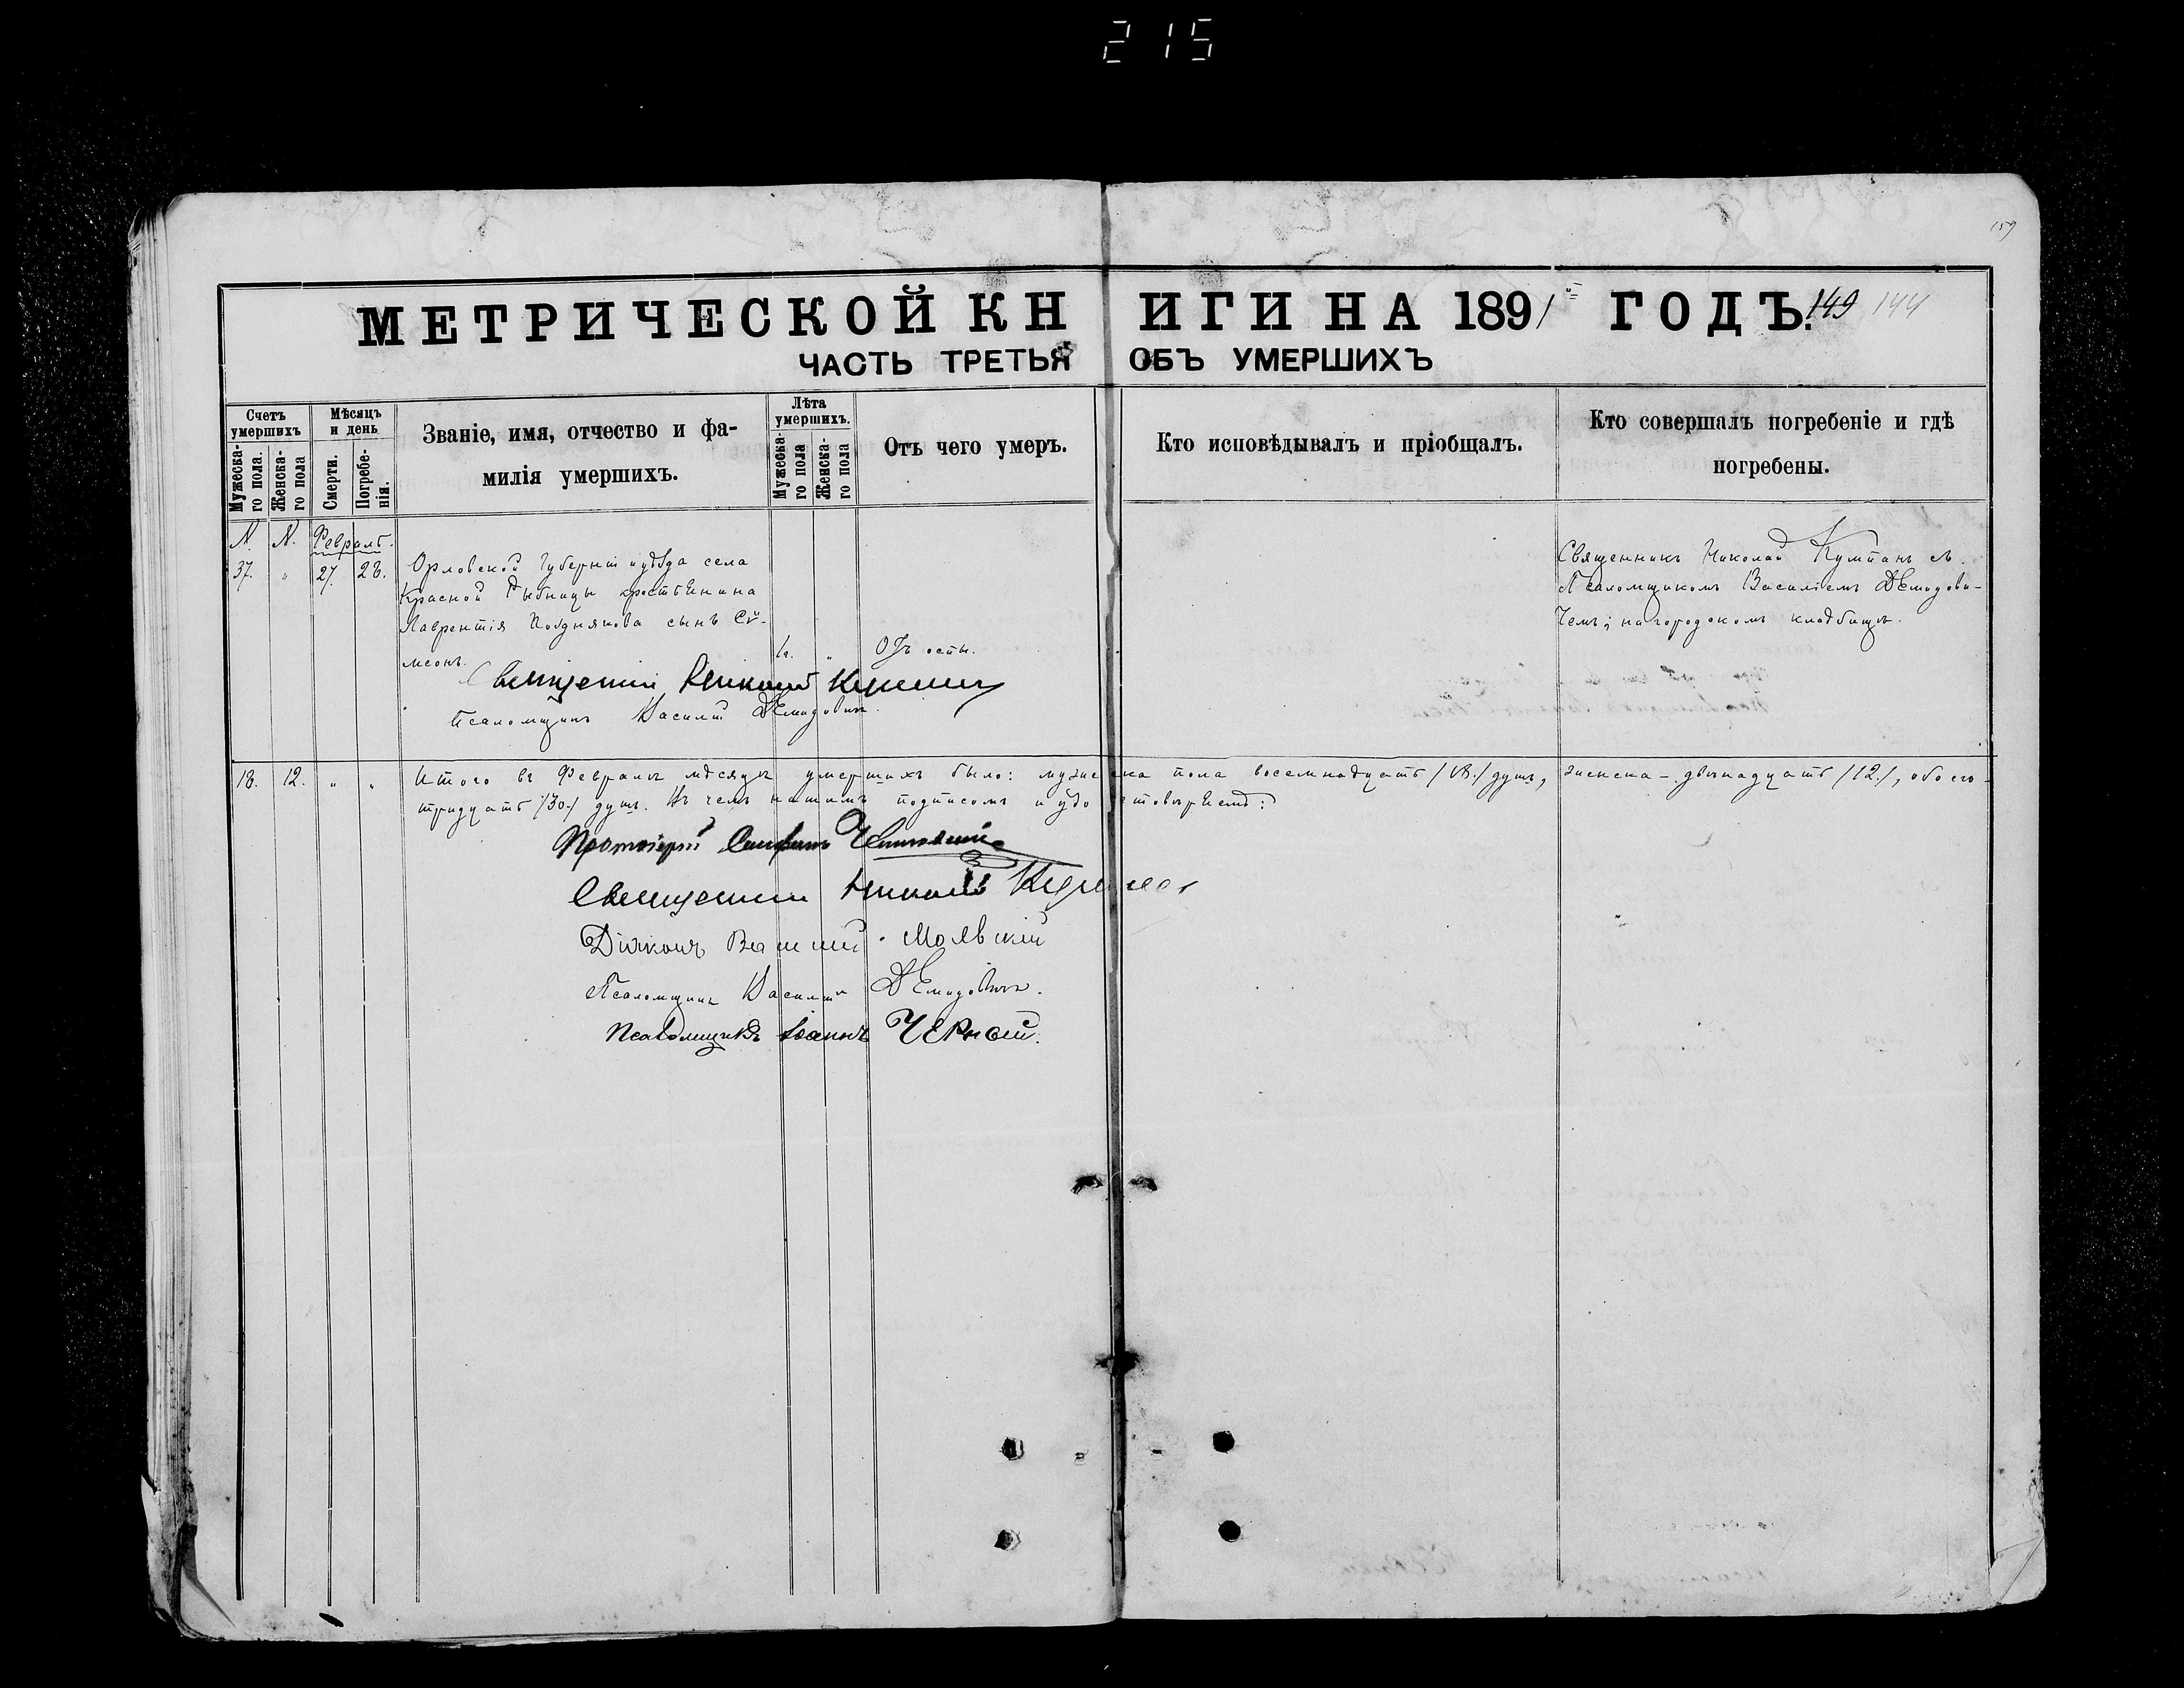 215
159
МЕТРИЧЕСКОЙ КНИГИ НА 1891й ГОДЪ. 149 144
ЧАСТЬ ТРЕТЬЯ ОБЪ УМЕРШИХЪ
Счетъ умершихъ
Мужеска-го пола.
Женска-го пола
Мѣсяцъ и день
Смерти.
Погребе-нія.
Званіе, имя, отчество и фа-
милія умершихъ.
Лѣта умершихъ.
Мужеска-го пола
Женска-го пола
Отъ чего умеръ.
Кто исповѣдывалъ и пріобщалъ.
Кто совершалъ погребеніе и гдѣ
погребены.
N. N. Февраль.
37. " 27. 28.
Орловской Губерніи и уѣзда села
Красной Рыбницы крестьянина
Лаврентія Позднякова сынъ Си-
меонъ.
1г. " Отъ оспы.
Священникъ Николай Купчанъ съ
Псаломщикомъ Василіемъ Демидови-
чемъ; на городскомъ кладбищѣ.
Священникъ Николай
Псаломщикъ Василій Демидовичъ.
18. 12. " " Итого въ Февралѣ мѣсяцѣ умершихъ было: мужеска пола восемнадцать /18./ душъ, женска – двѣнадцать /12./, обоего –
тридцать /30./ душъ. Въ чемъ нашимъ подписомъ и удостовѣряемъ:
Протоіерей
Священникъ Николай
Діаконъ Василій
Псаломщикъ Василій Демидовичъ.
Псаломщикъ Іоаннъ Черный.